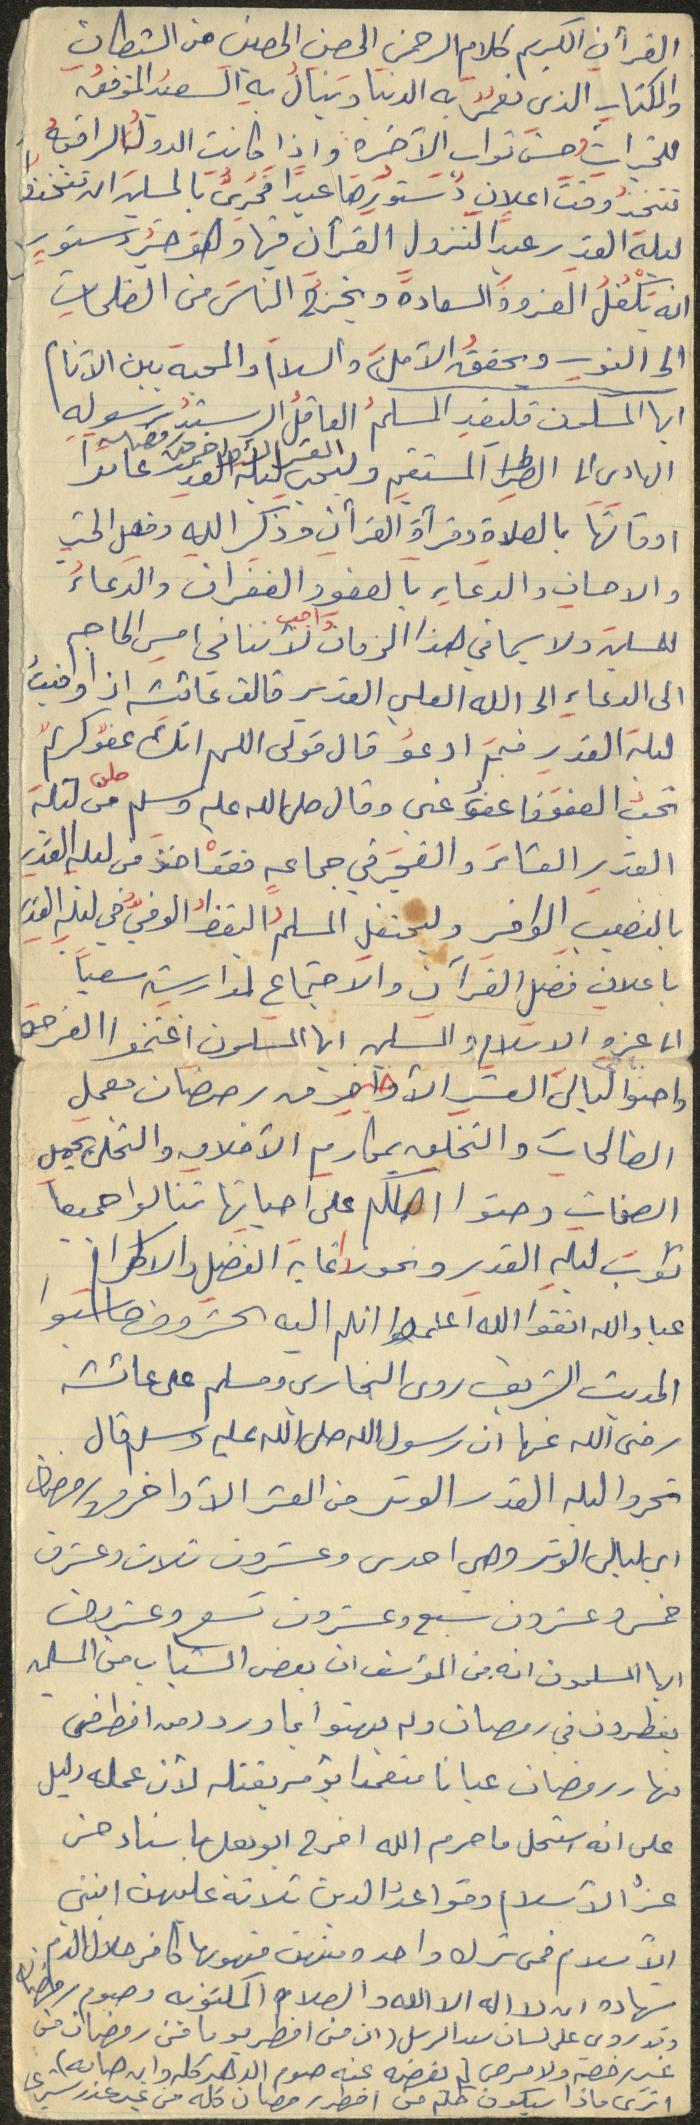 القرآن الكريم كلام الرحمن الحصن الحصين من الشيطان
والكتاب الذي نعمر به الدنيا وينال به السعيد الموفق
للخيرات حسن ثواب الآخرة واذا كانت الدول الراقية
تتخذ وقت اعلان دستورها عيدا فحري بالمسلمين ان تتخذ
ليلة القدر عيد النزول القرآن فيها وهو خير دستور
انه يكفل العز والسعادة ويخرج الناس من الظلمات
الى النور ويحقق الأمل والسلام والمحبة بين الأنام
ايها المسلمون فليقتد المسلم العاقل الرشيد برسوله
الهادي الى الصراط المستقيم وليحي ليلة القدر العشر الأواخر من رمضان عامرا
اوقاتها بالصلاة وقرآة القرآن وذكر الله وفعل الخير
والاحسان والدعاء بالعفو والغفران والدعاء
للمسلمين ولا سيما في هذا الزمان واجب لأننا في امس الحاجة
الى الدعاء الى الله العلي القدير قالت عائشة اذا وافيت
ليلة القدر فبم ادعو قال قولي اللهم انك عفو كريم
تحب العفو فاعف عني وقال صلى الله عليه وسلم من صلى ليلة
القدر العشاء والفجر في جماعة فقد اخذ من ليلة القدر
بالنصيب الوافر وليحتفل المسلم اليقظ الوفي في ليلة القدر
باعلان فضل القرآن والاجتماع لمدارسته سعيا
الى عز الاسلام والمسلمين ايها المسلمون اغتنموا الفرصة
واحيوا ليالي العشر الأواخر من رمضان بعمل
الصالحات والتخلق بمكارم الأخلاق والتحلي بجميل
الصفات وحثوا اهلكم على احيائها تنالوا جميعا
ثواب ليلة القدر وتحوزوا غاية الفضل والاكرام
عباد الله اتقوا الله اعلموا انكم اليه تحشرون
الحديث الشريف روى البخاري ومسلم عن عائشة
رضى الله عنها ان رسول الله صلى الله عليه وسلم قال
تحروا ليلة القدر الوتر من العشر الأواخر من رمضان
اي ليالي الوتر وهي احدى وعشرون ثلاث وعشرون
خمس وعشرون سبع وعشرون تسع وعشرون
ايها المسلمون انه من المؤسف ان بعض الشباب من المسلمين
يفطرون في رمضان ولم يهتموا بما ورد من افطر في
نهار رمضان عيانا متعمدا يؤمر بقتله لأن عمله دليل
على انه استحل ما حرم الله اخرج ابو يعلى باسناد حسن
عز الاسلام وقواعد الدين ثلاثة عليهن ابتني
الاسلام فمن ترك واحدة منهن فهو بها كافر حلال الدم
شهادة ان لا اله الا الله والصلاة المكتوبة وصوم رمضان
وقد روي على لسان سيد الرسل (ان من افطر يوما من رمضان من
غير رخصة ولا مرض لم يقضه عنه صوم الدهر كله وان صامه)
اترى ماذا سيكون حكم من افطر رمضان كله من غير عذر شرعي